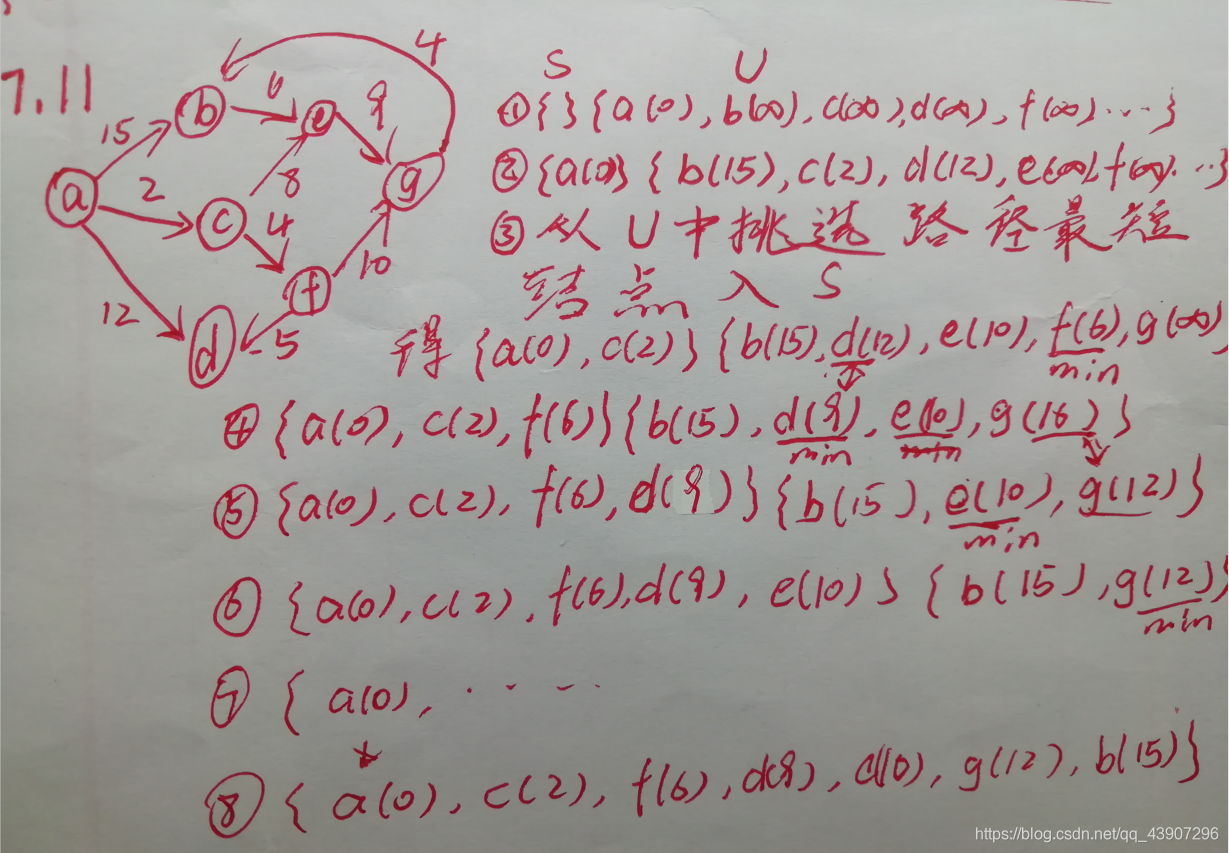 7.11
4
b 6 e 9
15
a 2 8 g
c 4
10
f
12
d 5
S U
① { } { a(0), b(∞), c(∞), d(∞), f(∞) ... }
② {a(0)} { b(15), c(2), d(12), e(∞), f(∞). ..}
③ 从 U 中挑选 路径最短
结点 入 S
得 {a(0), c(2)} {b(15), d(12), e(10), f(6), g(∞)
min
④ {a(0), c(2), f(6)} {b(15), d(9), e(10), g(16) }
min min
⑤ {a(0), c(2), f(6), d(9)} {b(15), e(10), g(12)}
min
⑥ {a(0), c(2), f(6), d(9), e(10) } { b(15), g(12)}
min
⑦ { a(0), ....
⑧ { a(0), c(2), f(6), d(9), e(10), g(12), b(15)}
https://blog.csdn.net/qq_43907296